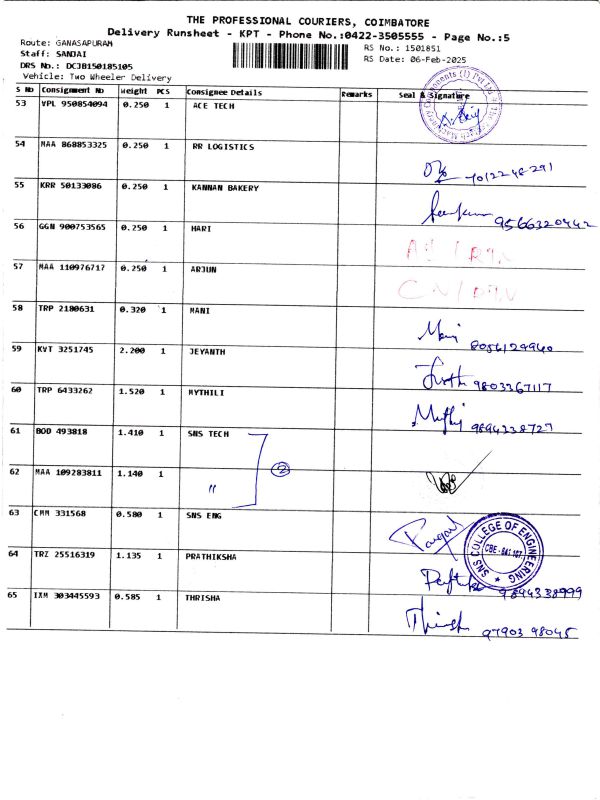 THE PROFESSIONAL COURIERS, COIMBATORE
Delivery Runsheet - KPT - Phone No.:0422-3505555 - Page No.:5
Route: GANASAPURAM
RS No.: 1501851
Staff: SANJAI
RS Date: 06-Feb-2025
DRS No.: DCJB150185105
Vehicle: Two Wheeler Delivery
S No Consignment No Weight PCS Consignee Details Remarks Seal & Signature
53 VPL 950854094 0.250 1 ACE TECH
54 MAA 868853325 0.250 1 RR LOGISTICS
7012248291
55 KRR 50133086 0.250 1 KANNAN BAKERY
9566320442
56 GGN 900753565 0.250 1 HARI
57 MAA 110976717 0.250 1 ARJUN
58 TRP 2180631 0.320 1 MANI
Mani 8056129940
59 KVT 3251745 2.200 1 JEYANTH
9803367117
60 TRP 6433262 1.520 1 MYTHILI
9894238727
61 BOD 493818 1.410 1 SNS TECH
2
62 MAA 109283811 1.140 1 "
63 CMM 331568 0.580 1 SNS ENG
SNS COLLEGE OF ENGINEERING
64 TRZ 25516319 1.135 1 PRATHIKSHA
9894338999
65 IXM 303445593 0.585 1 THRISHA
97903 98045